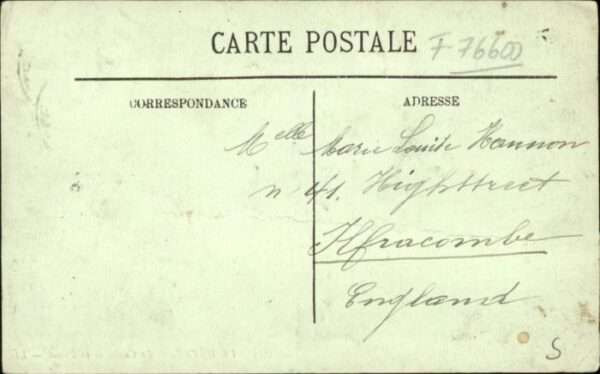 CARTE POSTALE F-76600
CORRESPONDANCE ADRESSE
Melle Marie Louise Hannon
n 41. Highstreet
Ilfracombe
England
S